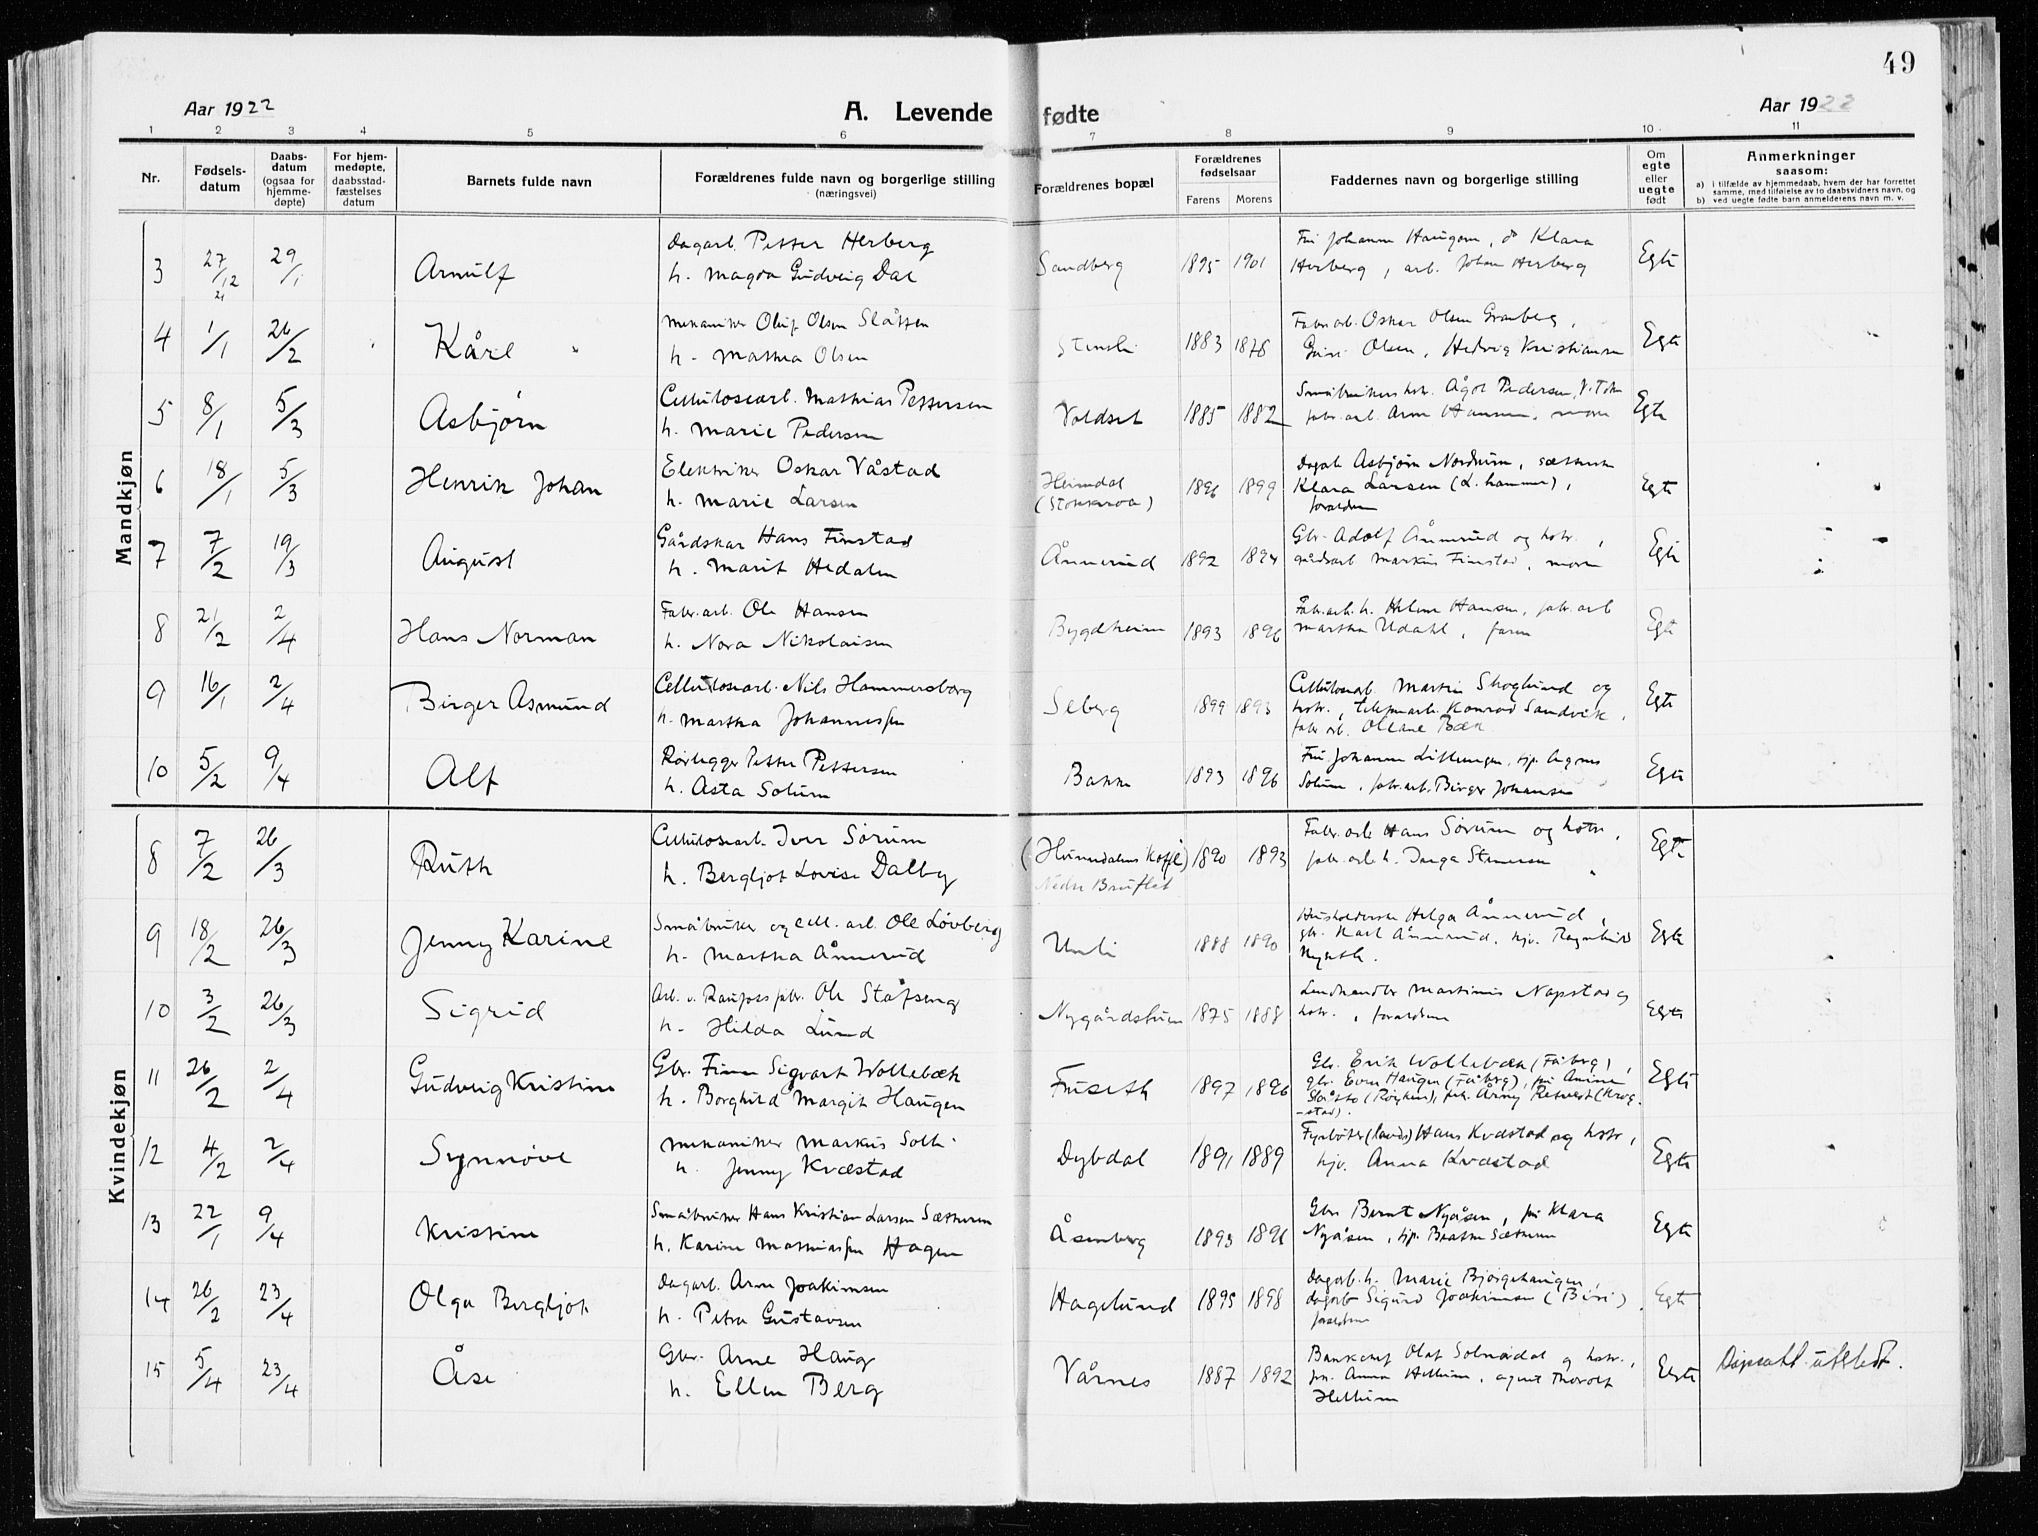 49
Aar 1922
A. Levende fødte
Aar 1922
1 2 3 4 5 6 7 8 9 10 11
Nr.
Fødsels-
datum
Daabs-
datum
(ogsaa for
hjemme-
døpte)
For hjem-
medøpte,
daabsstad-
fæstelses
datum
Barnets fulde navn
Forældrenes fulde navn og borgerlige stilling
(næringsvei)
Forældrenes bopæl
Forældrenes
fødselsaar
Farens Morens
Faddernes navn og borgerlige stilling
Om
egte
eller
uegte
født
Anmerkninger
saasom:
a) i tilfælde av hjemmedaab, hvem der har forrettet
samme, med tilføielse av to daabsvidners navn, og
b) ved uegte fødte barn anmelderens navn m. v.
Mandkjøn
3 27/12 21 29/1 Arnulf
Dagarb. Petter Herberg
h. Magda Gudveig Dal
Sandberg 1895 1901
Fru Johanne Haugom, do Klara
Herberg, arb. Johan Herberg
Egte
4 1/1 26/2 Kåre
Mekaniker Oluf Olsen Slåtten
h. Mathea Olsen
Stenli 1883 1878
Fabr.arb. Oskar Olsen Granberg,
Olsen, Hedvig Kristiansen
Egte
5 8/1 5/3 Asbjørn
Cellulosearb. Mathias Pettersen
h. Marie Pedersen
Voldset 1885 1882
Småbrukers hstr. Ågot Pedersen,
fabr.arb. Arne Hansen, moren
Egte
6 18/1 5/3 Henrik Johan
Elektriker Oskar Våstad
h. Marie Larsen
Heimdal
(Stokkmoa)
1896 1899
Dagarb. Asbjørn Nordrum,
Klara Larsen (L.hammer),
forældrene
Egte
7 7/2 19/3 August
Gårdskar Hans Finstad
h. Marit Hedalen
Ånnerud 1892 1894
Gbr. Adolf Ånnerud og hstr.,
gårdsarb Markus Finstad, moren
Egte
8 21/2 2/4 Hans Norman
Fabr.arb. Ole Hansen
h. Nora Nikolaisen
Bygdheim 1893 1896
Fabr.arb. h. Helene Hansen, fabr.arb
Martha Udahl, faren
Egte
9 16/1 2/4 Birger Asmund
Cellulosearb. Nils Hammersberg
h. Martha Johannessen
Seberg 1899 1893
Cellulosearb. Martin Skoglund og
hstr., Konrad Sandvik,
fabr.arb. Oleane Bæk
Egte
10 5/2 9/4 Alf
Rørlegger Petter Pettersen
h. Asta Solum
Bakke 1893 1896
Fru Johanne Lillengen, tjp. Agnes
Solum, fabr.arb. Birger Johansen
Egte
Kvindekjøn
8 7/2 26/3 Ruth
Cellulosearb. Iver Sørum
h. Bergljot Lovise Dalby
(Hunndalens Kaffé)
Nedre Bruflat
1890 1893
Fabr.arb Hans Sørum og hstr.,
fabr.arb. h. Inga Stenersen
Egte
9 18/2 26/3 Jenny Karine
Småbruker og cell. arb. Ole Løvberg
h. Martha Ånnerud
Unli 1888 1890
Husholderske Helga Ånnerud,
gbr. Karl Ånnerud, hjv. Ragnhild
Nyseth.
Egte
10 3/2 26/3 Sigrid
Arb. v. Raufoss fabr. Ole Stafseng
h. Hilda Lund
Nygårdstuen 1875 1888
Landhandler Martinius Nøpstad og
hstr., forældrene
Egte
11 26/2 2/4 Gudveig Kristine
Gbr. Finn Sigvart Wollebæk
h. Borghild Margit Haugen
Fuseth 1897 1896
Gbr. Erik Wollebæk (Fåberg),
gbr. Even Haugen (Fåberg), fru Anine
frk. Årny
-stad).
Egte
12 4/2 2/4 Synnøve
Mekaniker Markus Solli
h. Jenny Kvæstad
Dybdal 1891 1889
Fyrbøter (lands) Hans Kvæstad og hstr.,
hjv. Anna Kvæstad
Egte
13 22/1 9/4 Kristine
Småbruker Hans Kristian Larsen Sætheren
h. Karine Mathiassen Hagen
Åsenberg 1893 1896
Gbr Bernt Nyåsen, fru Klara
Nyåsen, tjp. Beathe Sætheren
Egte
14 26/2 23/4 Olga Bergljot
Dagarb. Arne Joakimsen
h. Petra Gustavsen
Hagelund 1895 1898
Dagarb. h. Marie Bjørgehaugen,
dagarb Sigurd Joakimsen (Biri),
forældrene
Egte
15 5/4 23/4 Åse
Gbr. Arne Haug
h. Ellen Berg
Vårnes 1887 1892
Bankchef Olaf Solnørdal og hstr.,
frk. Anna Hellum, agent Thorolf
Hellum
Egte
Dåpsatt. utstedt.